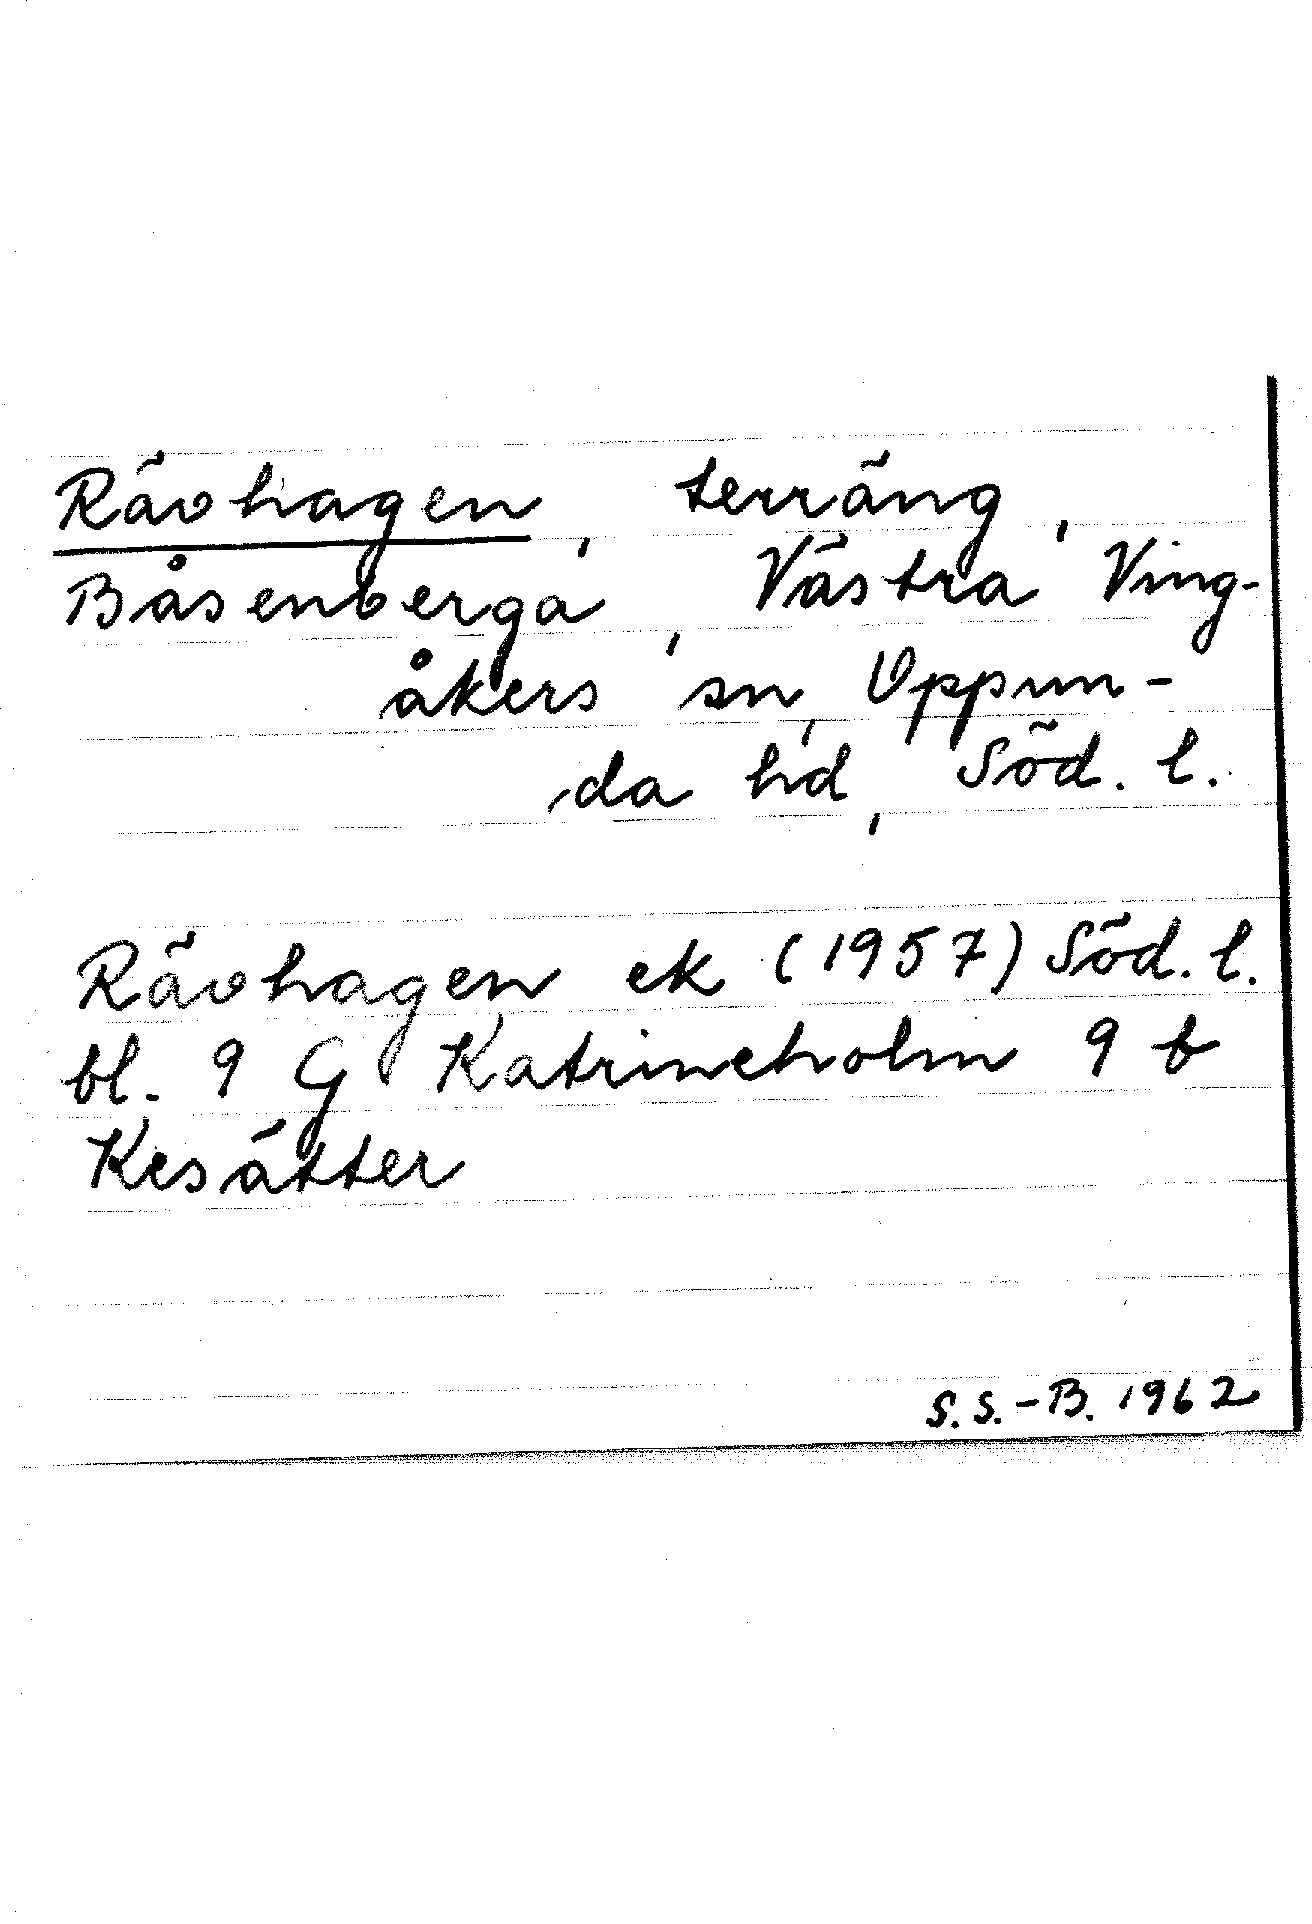 Rävhagen, terräng,
Båsenberga, Västra Ving-
åkers sn, Oppun-
da hd, Söd. l.
Rävhagen ek (1957) Söd. l.
bl. 9 G Katrineholm 9 b
Kesätter
S. S.-B. 1962